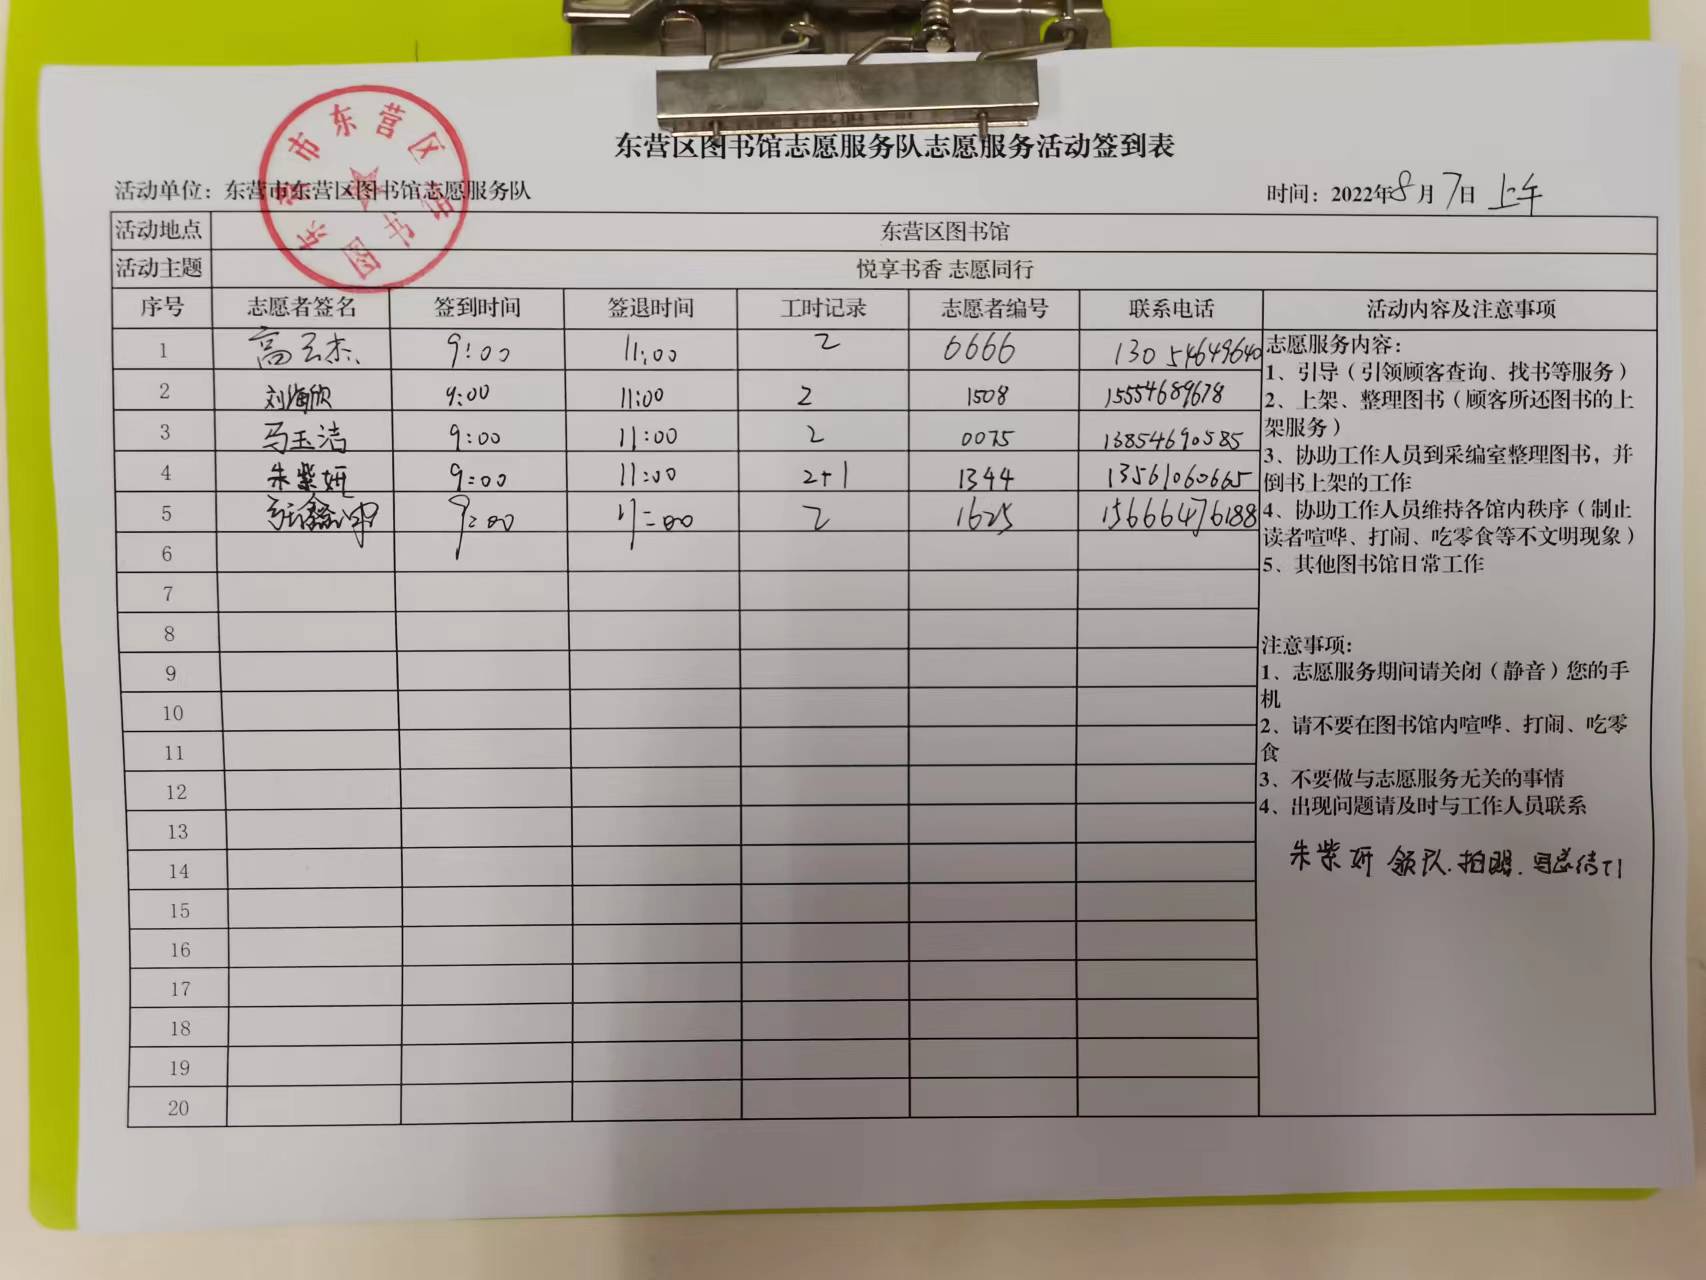 东营区图书馆志愿服务队志愿服务活动签到表
东营市东营区图书馆
活动单位：东营市东营区图书馆志愿服务队 时间：2022年8月7日 上午
活动地点 东营区图书馆
活动主题 悦享书香 志愿同行
序号 志愿者签名 签到时间 签退时间 工时记录 志愿者编号 联系电话 活动内容及注意事项
1 高云杰 9:00 11:00 2 6666 13054649640
2 刘海欣 9:00 11:00 2 1508 15554689678
3 马玉洁 9:00 11:00 2 0075 13854690585
4 朱紫妍 9:00 11:00 2+1 1344 13561060665
5 9:00 11:00 2 1625 15666476188
6
7
8
9
10
11
12
13
14
15
16
17
18
19
20
志愿服务内容：
1、引导（引领顾客查询、找书等服务）
2、上架、整理图书（顾客所还图书的上
架服务）
3、协助工作人员到采编室整理图书，并
倒书上架的工作
4、协助工作人员维持各馆内秩序（制止
读者喧哗、打闹、吃零食等不文明现象）
5、其他图书馆日常工作
注意事项：
1、志愿服务期间请关闭（静音）您的手
机
2、请不要在图书馆内喧哗、打闹、吃零
食
3、不要做与志愿服务无关的事情
4、出现问题请及时与工作人员联系
朱紫妍 领队.拍照.写总结+1